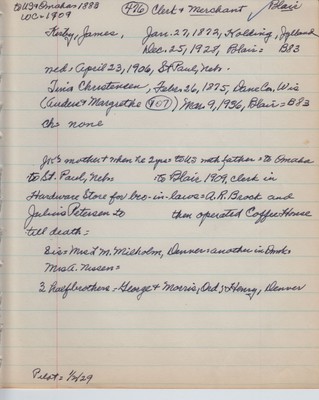 to US & Omaha 1883
WC = 1909
(476) Clerk & Merchant ✓ Blair
Kirby, James, Jan. 27, 1872, Kolding, Jylland
Dec. 25, 1928, Blair = B83
md = April 23, 1906, St Paul, Nebr.
Tina Christensen, Feb. 26, 1875, Dane Co, Wis
(Anders & Margrethe (407)) Mar. 9, 1936, Blair = B83
Ch = none
Jr's mother + when he 2 yrs = to US with father = to Omaha
to St. Paul, Nebr to Blair 1909, clerk in
Hardware Store for bro-in-laws = A.R. Brock and
Julius Petersen to then operated Coffee House
till death =
Sis = Mrs L. M. Mielholm, Denver = another in Denmk =
Mrs A. Nissen =
3 halfbrothers = George & Morris, Ord, & Henry, Denver
Pilot = 1/2/29